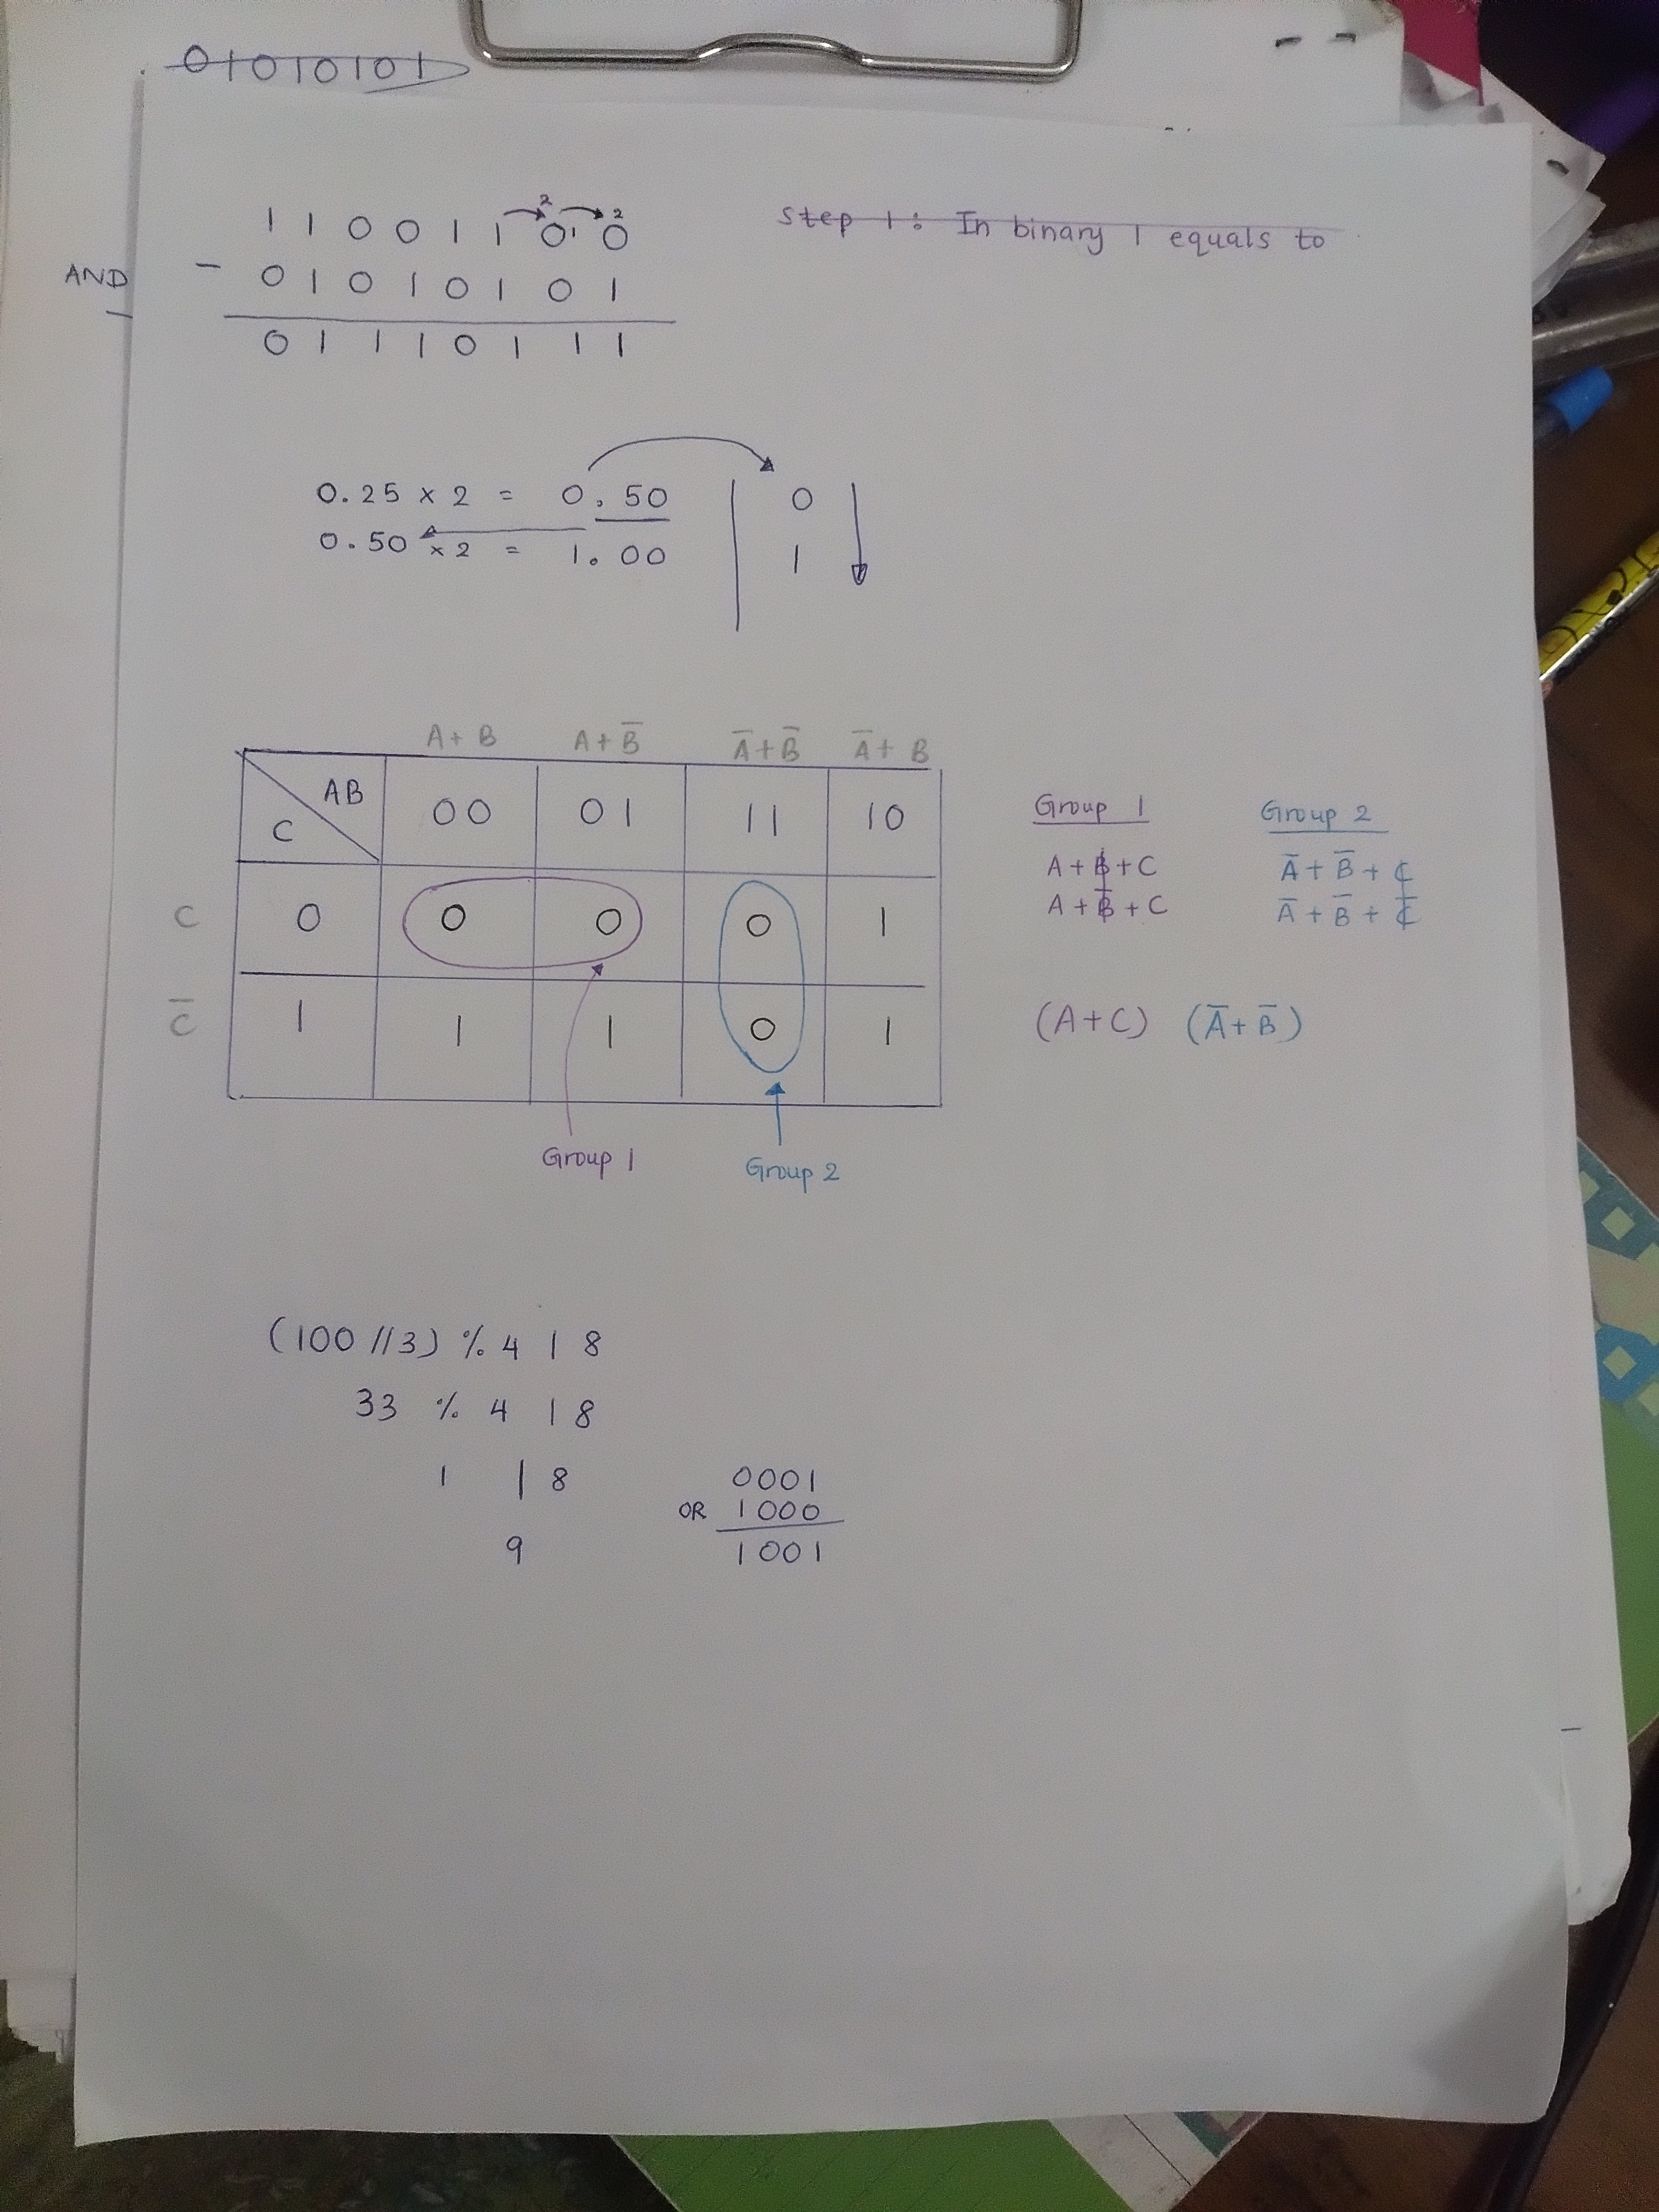 01010101
2 2
1 1 0 0 1 1 0 1 0
AND
- 0 1 0 1 0 1 0 1
0 1 1 1 0 1 1 1
Step 1: In binary 1 equals to
0.25 x 2 = 0.50 0
0.50 x 2 = 1.00 1
A+B A+B̅ A̅+B̅ A̅+B
AB
C
00 01 11 10
C 0 0 0 0 1
C̅ 1 1 1 0 1
Group 1
Group 2
Group 1
A+B+C
A+B̅+C
Group 2
A̅+B̅+C
A̅+B̅+C̅
(A+C) (A̅+B̅)
(100//3) % 4 | 8
33 % 4 | 8
1 | 8
9
0001
OR 1000
1001